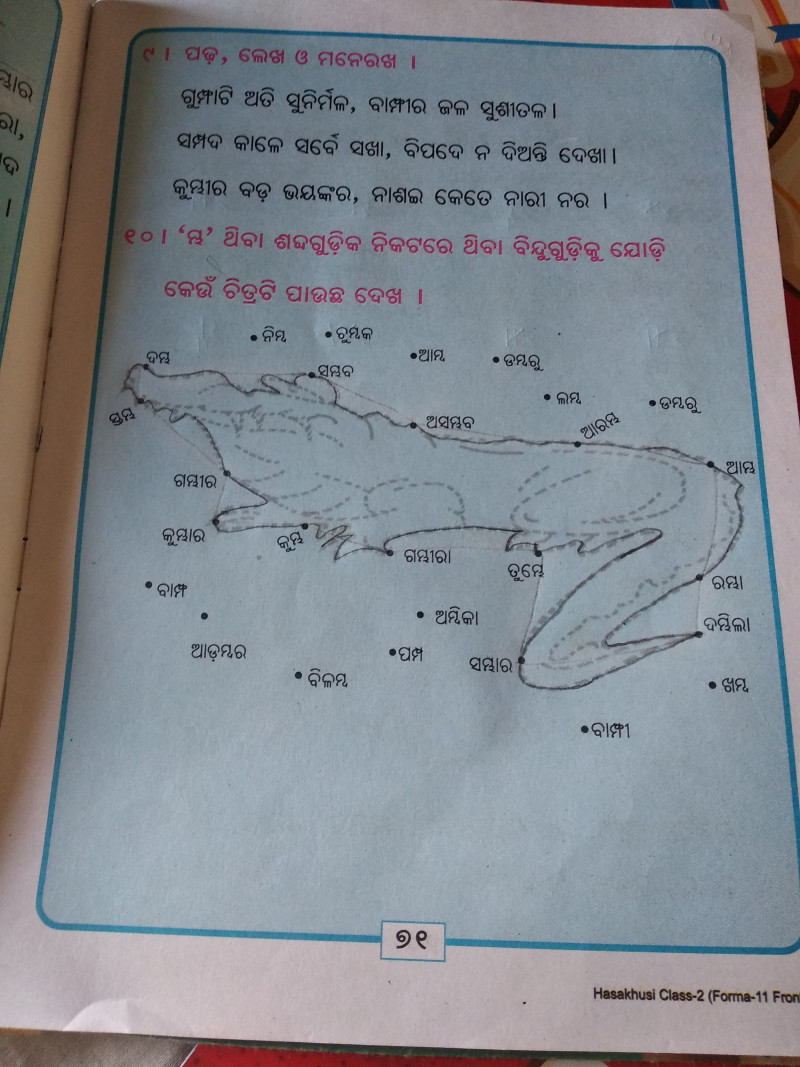 ୯ । ପଢ଼, ଲେଖ ଓ ମନେରଖ ।
ଗୁମ୍ଫାଟି ଅତି ସୁନିର୍ମଳ, ବାମ୍ଫୀର ଜଳ ସୁଶୀତଳ ।
ସମ୍ପଦ କାଳେ ସର୍ବେ ସଖା, ବିପଦେ ନ ଦିଅନ୍ତି ଦେଖା ।
କୁମ୍ଭୀର ବଡ଼ ଭୟଙ୍କର, ନାଶଇ କେତେ ନାରୀ ନର ।
୧୦ । ‘ମ୍ଭ’ ଥିବା ଶବ୍ଦଗୁଡ଼ିକ ନିକଟରେ ଥିବା ବିନ୍ଦୁଗୁଡ଼ିକୁ ଯୋଡ଼ି
କେଉଁ ଚିତ୍ରଟି ପାଉଛ ଦେଖ ।
ନିମ୍ବ
ଚୁମ୍ବକ
ଦମ୍ଭ
ସମ୍ଭବ
ଆମ୍ବ
ଡମ୍ବରୁ
ଲମ୍ବ
ଡମ୍ବରୁ
ସ୍ତମ୍ଭ
ଅସମ୍ଭବ
ଆରମ୍ଭ
ଆମ୍ଭ
ଗମ୍ଭୀର
କୁମ୍ଭାର
କୁମ୍ଭ
ଗମ୍ଭୀରା
ତୁମ୍ଭେ
ରମ୍ଭା
ବାମ୍ଫ
ଆଡ଼ମ୍ବର
ଅମ୍ବିକା
ଦମ୍ଭିଲା
ପମ୍ପ
ସମ୍ଭାର
ବିଳମ୍ବ
ଖମ୍ବ
ବାମ୍ଫୀ
୭୧
Hasakhusi Class-2 (Forma-11 Fron